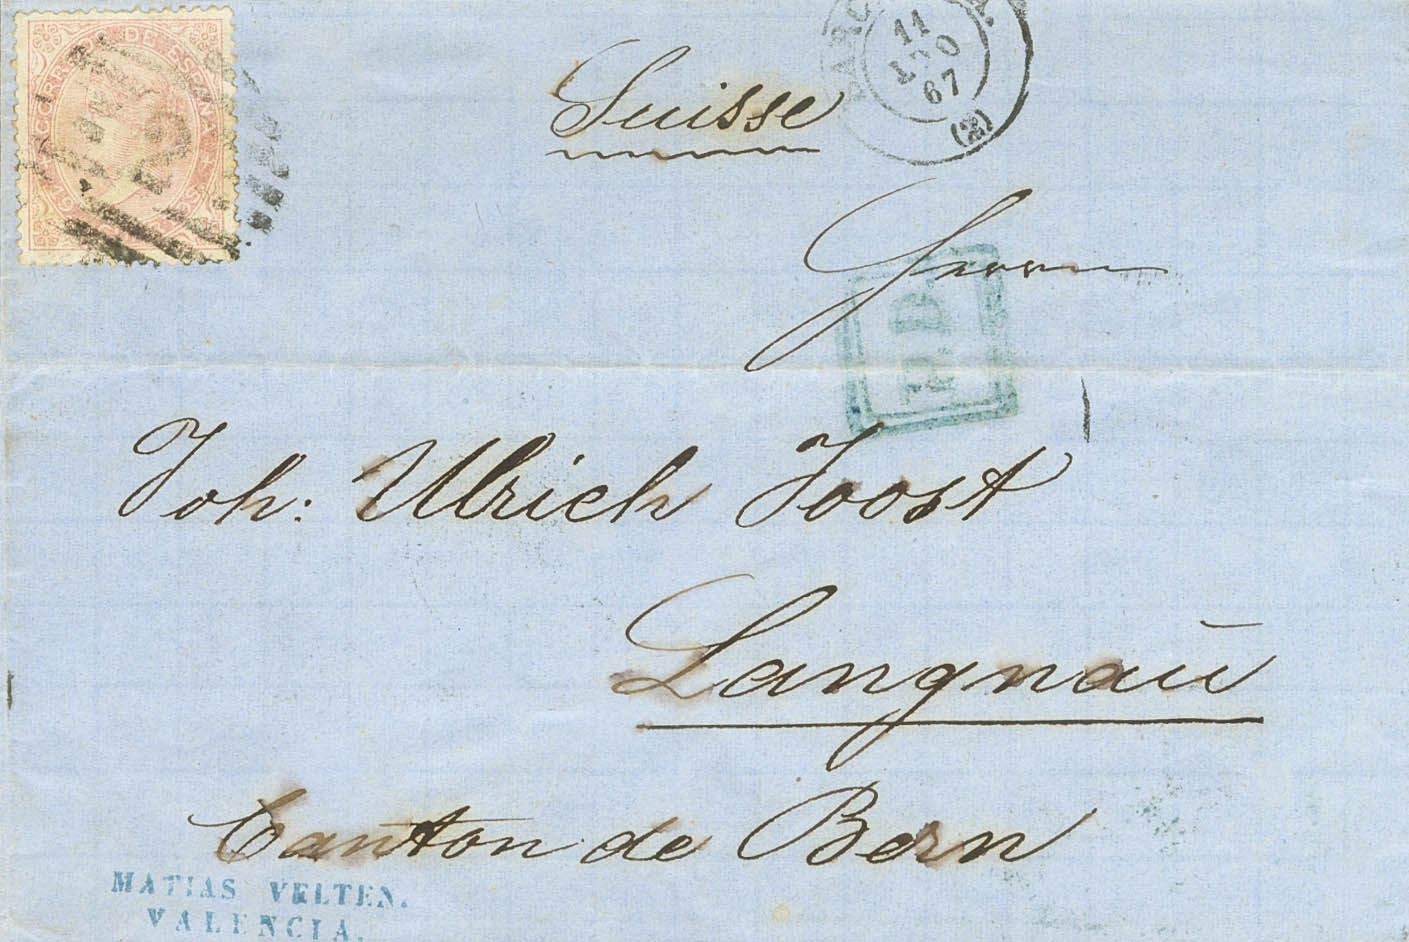 CORREOS DE ESPAÑA
11
67
(2)
Suisse
Herrn
P.D.
Joh: Ulrich Joost
Langnau
Canton de Bern
MATIAS VELTEN.
VALENCIA.